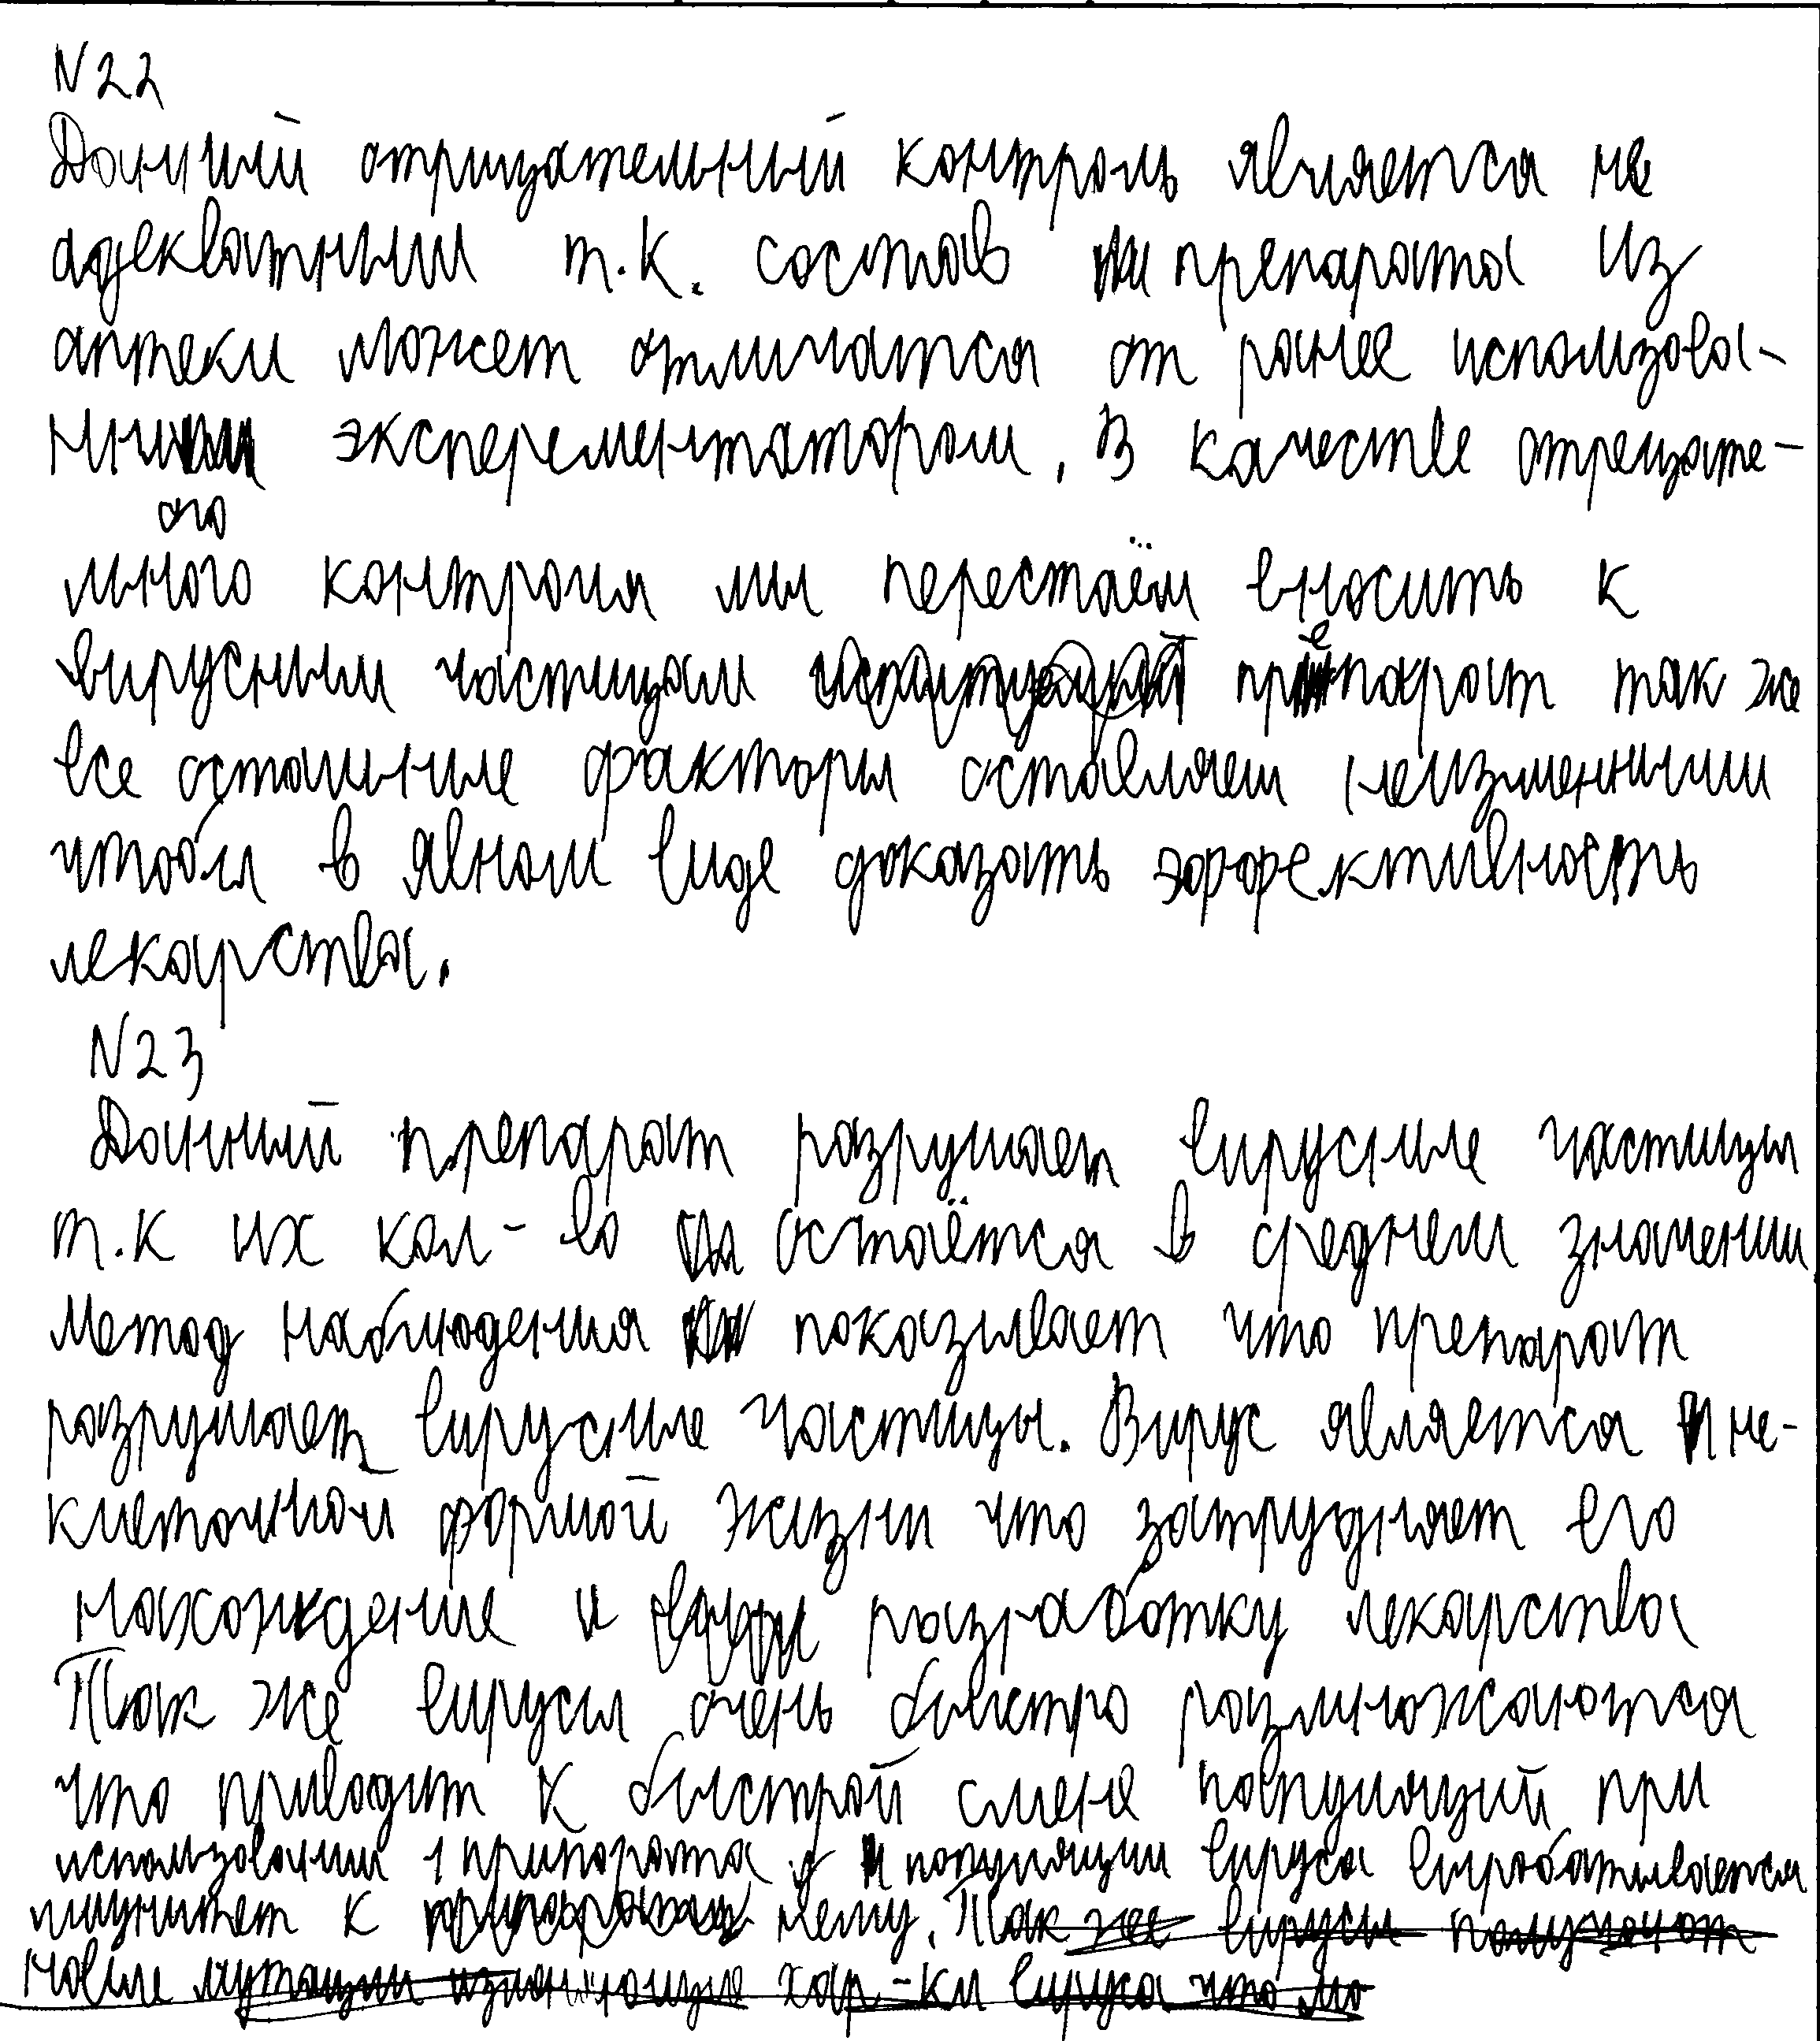 N22
Данный отрицательный контроль является не
адекватным т.к. состав препарата из
аптеки может отличатся от ранее использова-
нным эксперементатором. В качестве отрецате-
ого
льного контроля мы перестаём вносить к
вирусным частицам препарат так же
все остальные факторы оставляем неизменными
чтобы в явном виде доказать эффективность
лекарства.
N23
Данный препарат разрушает вирусные частицы
т.к их кол-во остаётся в среднем значении
Метод наблюдения показывает что препарат
разрушает вирусные частицы. Вирус является не-
клеточной формой жизни что затрудняет его
нахождение и разработку лекарства
Так же вирусы очень быстро размножаются
что приводит к быстрой смене популяций при
использовании 1 припарата у популяции вируса вырабатывается
имунитет к нему. Так же вирусы получают
новые мутации изменяющие хар-ки вируса что мо